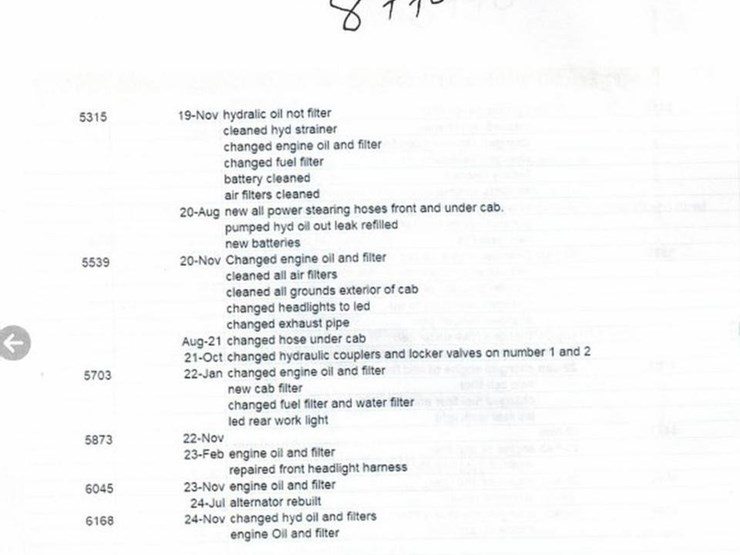 5315 19-Nov hydralic oil not filter
cleaned hyd strainer
changed engine oil and filter
changed fuel filter
battery cleaned
air filters cleaned
20-Aug new all power stearing hoses front and under cab.
pumped hyd oil out leak refilled
new batteries
5539 20-Nov Changed engine oil and filter
cleaned all air filters
cleaned all grounds exterior of cab
changed headlights to led
changed exhaust pipe
Aug-21 changed hose under cab
21-Oct changed hydraulic couplers and locker valves on number 1 and 2
5703 22-Jan changed engine oil and filter
new cab filter
changed fuel filter and water filter
led rear work light
5873 22-Nov
23-Feb engine oil and filter
repaired front headlight harness
6045 23-Nov engine oil and filter
24-Jul alternator rebuilt
6168 24-Nov changed hyd oil and filters
engine Oil and filter